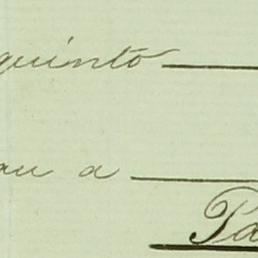 quinto
au a
Pa